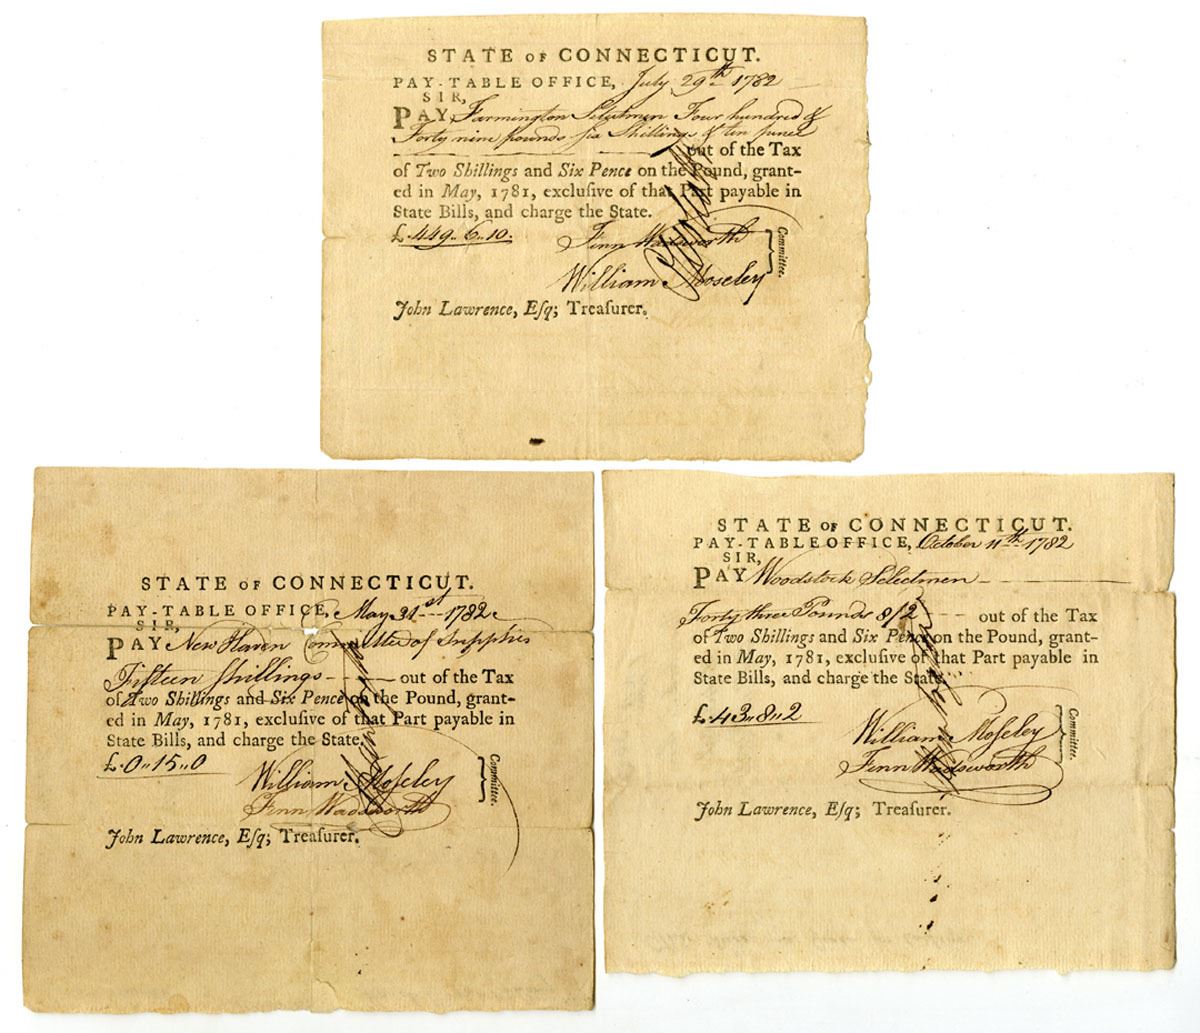 STATE OF CONNECTICUT.
PAY-TABLE OFFICE, July 29th 1782
SIR,
PAY Farmington Selectmen Four hundred &
Forty nine pounds six Shillings & ten pence
out of the Tax
of Two Shillings and Six Pence on the Pound, grant-
ed in May, 1781, excluſive of that Part payable in
State Bills, and charge the State.
£.449..6..10.
Fenn Wadsworth
William Moseley
Committee.
John Lawrence, Eſq; Treaſurer.
STATE OF CONNECTICUT.
PAY-TABLE OFFICE, May 31st 1782
SIR,
PAY New Haven Committee of Supplies
Fifteen Shillings — out of the Tax
of Two Shillings and Six Pence on the Pound, grant-
ed in May, 1781, excluſive of that Part payable in
State Bills, and charge the State.
£.0,,15,,0
William Moſeley
Fenn Wadsworth
Committee.
John Lawrence, Eſq; Treaſurer.
STATE OF CONNECTICUT.
PAY-TABLE OFFICE, October 11th 1782
SIR,
PAY Woodstock Selectmen
Forty three Pounds 8/2 — out of the Tax
of Two Shillings and Six Pence on the Pound, grant-
ed in May, 1781, excluſive of that Part payable in
State Bills, and charge the State.
£.43,,8,,2
William Moſeley
Fenn Wadsworth
Committee.
John Lawrence, Eſq; Treaſurer.